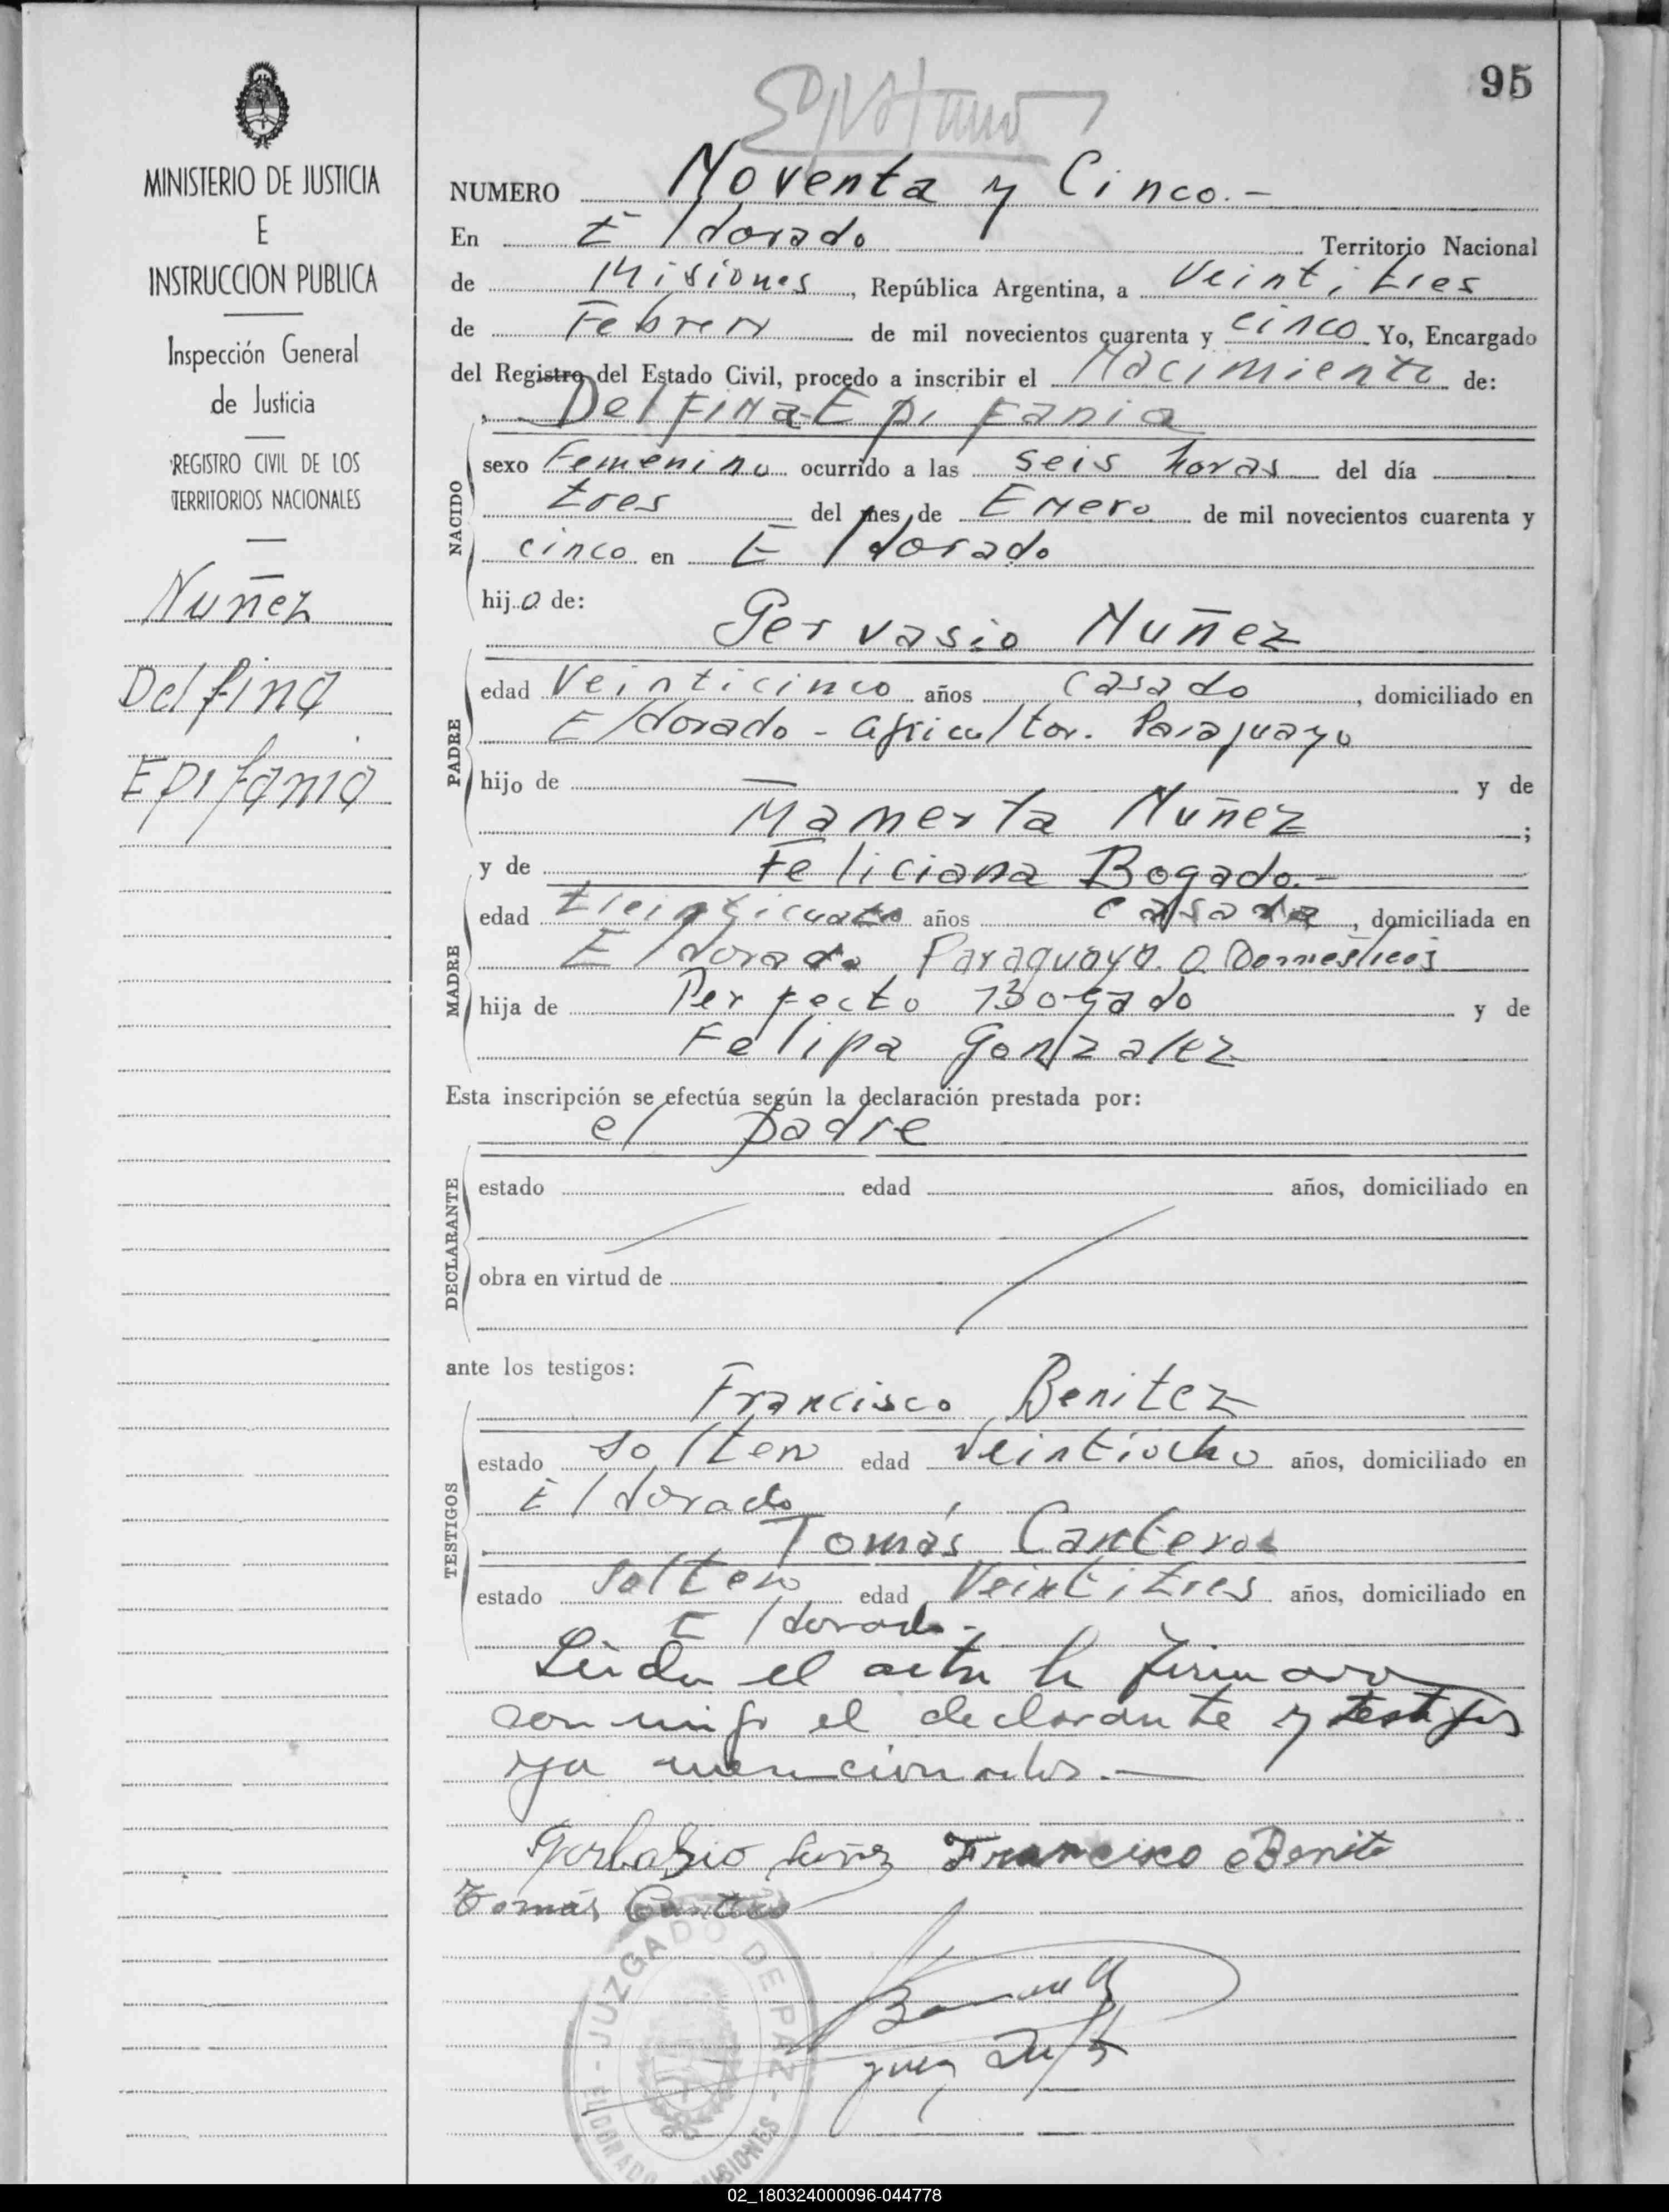 95
MINISTERIO DE JUSTICIA
E
INSTRUCCION PUBLICA
Inspección General
de Justicia
REGISTRO CIVIL DE LOS
TERRITORIOS NACIONALES
Nuñez
Delfina
Epifania
NUMERO Noventa y Cinco.-
En Eldorado Territorio Nacional
de Misiones, República Argentina, a Veintitres
de Febrero de mil novecientos cuarenta y cinco Yo, Encargado
del Registro del Estado Civil, procedo a inscribir el Nacimiento de:
Delfina Epifania
NACIDO
sexo Femenino ocurrido a las seis horas del día
tres del mes de Enero de mil novecientos cuarenta y
cinco en Eldorado
hija de:
Gervasio Nuñez
PADRE
edad Veinticinco años casado, domiciliado en
Eldorado - agricultor. Paraguayo
hijo de — y de
Mamerta Nuñez ;
y de Feliciana Bogado.-
MADRE
edad años casada, domiciliada en
Eldorado Paraguaya. Q. Domésticos
hija de Perfecto Bogado y de
Felipa Gonzalez
Esta inscripción se efectúa según la declaración prestada por:
el padre
DECLARANTE
estado edad años, domiciliado en
obra en virtud de
ante los testigos:
Francisco Benitez
TESTIGOS
estado soltero edad Veintiocho años, domiciliado en
Eldorado
Tomás Canteros
estado soltero edad Veintitres años, domiciliado en
Eldorado.-
Leida el acta la firmaron
conmigo el declarante y testigos
ya mencionados.—
Gerbasio Francisco Benite
Tomás
JUZGADO DE PAZ - ELDORADO MISIONES
02_180324000096-044778